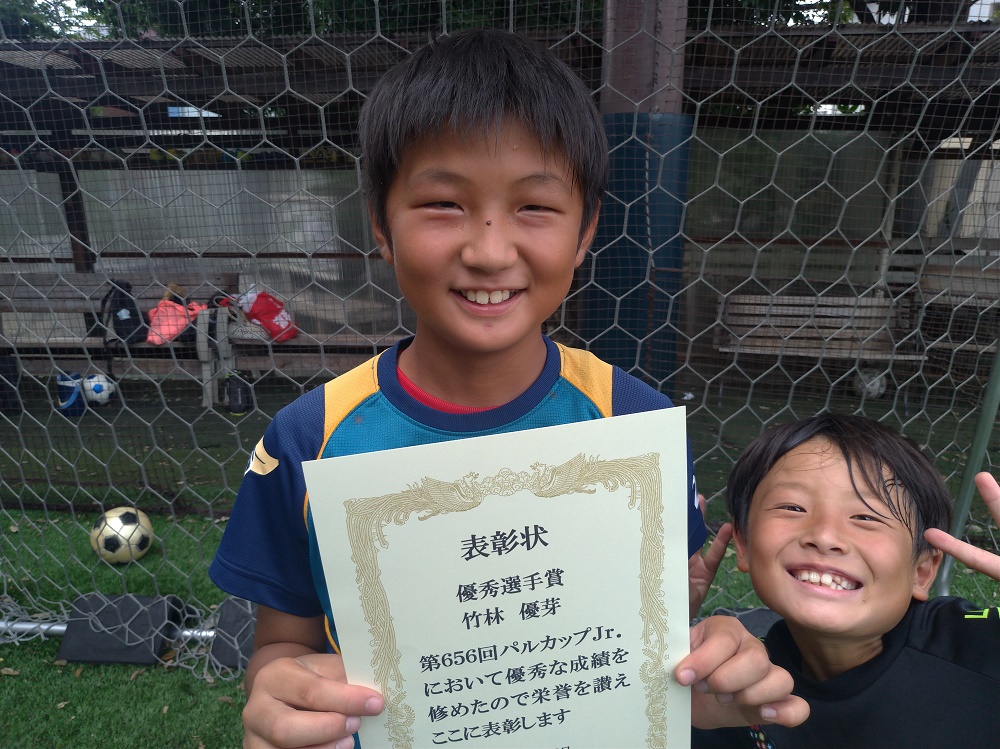 表彰状
優秀選手賞
竹林 優芽
第656回パルカップJr.
において優秀な成績を
修めたので栄誉を讃え
ここに表彰します